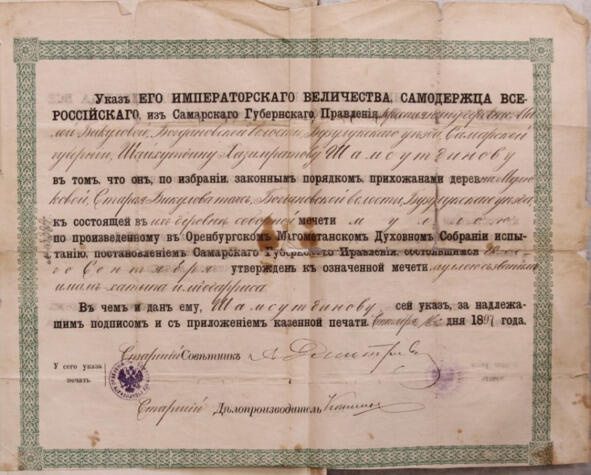 Указъ ЕГО ИМПЕРАТОРСКАГО ВЕЛИЧЕСТВА, САМОДЕРЖЦА ВСЕ-
РОССІЙСКАГО, изъ Самарскаго Губернскаго Правленія, крестьянину деревни
Бикуловой, Богдановской волости, Бугульминскаго уѣзда, Самарской
губерніи, Шамсутдинову
въ томъ, что онъ, по избранію законнымъ порядкомъ, прихожанами деревни
ковой, Старая Бикулова тамъ, Богдановской волости Бугульминскаго уѣзда,
къ состоящей въ ихъ деревнѣ соборной мечети муллою
по произведенному въ Оренбургскомъ Магометанскомъ Духовномъ Собраніи испы-
танію, постановленіемъ Самарскаго Губернскаго Правленія, состоявшимся
го Сентября утвержденъ къ означенной мечети муллою въ званіи
имамъ хатыпа и мюдарриса
Въ чемъ и данъ ему, Шамсутдинову сей указъ, за надлежа-
щимъ подписомъ и съ приложеніемъ казенной печати. дня 189 года.
Старшій Совѣтникъ
У сего указа
печать
Старшій Дѣлопроизводитель